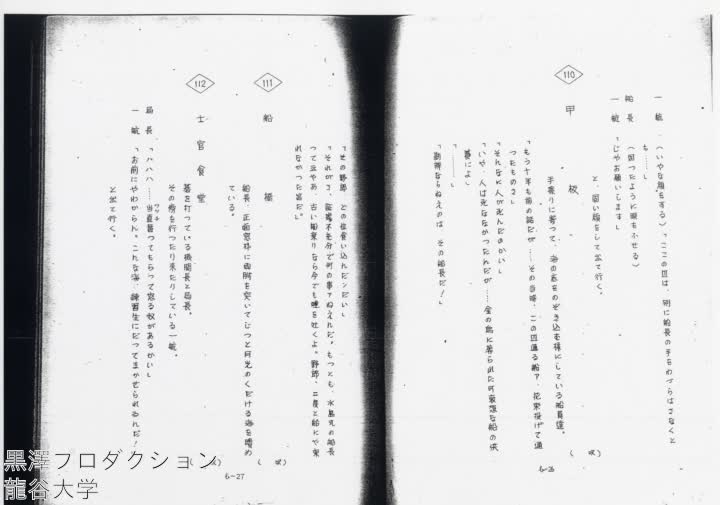 一航「(いやな顔をする)「ここの区は、別に船長の手をわづらはさなくと
も……」
船長 (困つたように眼をふせる)
一航「じやお願いします」
と、固い顔をして出て行く。
(\u3000)
110
甲板
手摺りに寄つて、海の底をのぞき込む様にしている船員達。
「もう十年も前の話だが……その当時、この辺通る船ァ、花束投げて通
つたものさ」
「そんなに人が死んだのかい」
「いや、人は死ななかつたんだが……金の為に葬られた可哀想な船の供
養によ」
「………」
「勘弁ならねえのは、その船長だ!」
6-26
「その野郎、どの位食い込んだンだい」
「それがさ、証拠不充分で何の事ァねえんだ。もつとも、水島丸の船長
つて云やあ、古い船乗りなら今でも唾を吐くよ。野郎、二度と船にや乗
れなかつた筈だ」
111
船橋
船長、正面窓枠に両肘を突いてじつと月光のくだける海を嗜め
ている。
112
士官食堂
碁を打つている機関長と局長。
その傍を行つたり来たりしている一航。
局長「ハハハ……当直替つてもらつて怒る奴があるかい」
ワツチ
一航「お前にやわからん。こんな海、練習生にだつてまかせられるんだ!
と出て行く。
6-27
黒澤プロダクション
龍谷大学